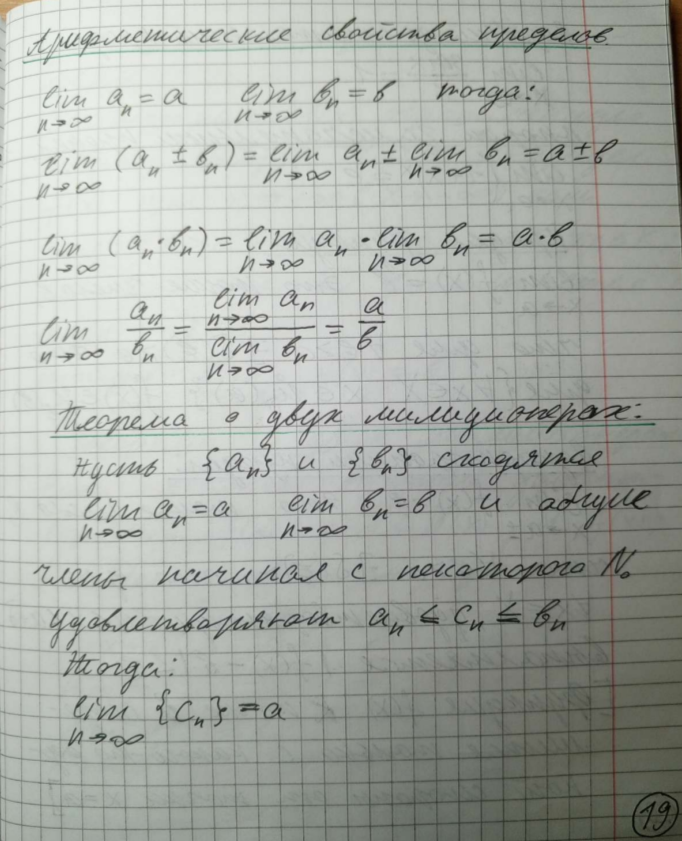 Арифметические свойства пределов
lim n→∞ aₙ = a lim n→∞ bₙ = b тогда:
lim n→∞ (aₙ ± bₙ) = lim n→∞ aₙ ± lim n→∞ bₙ = a ± b
lim n→∞ (aₙ · bₙ) = lim n→∞ aₙ · lim n→∞ bₙ = a · b
lim n→∞ aₙ/bₙ = (lim n→∞ aₙ)/(lim n→∞ bₙ) = a/b
Теорема о двух милиционерах:
пусть {aₙ} и {bₙ} сходятся
lim n→∞ aₙ = a lim n→∞ bₙ = b и общие
члены начиная с некоторого N₀
удовлетворяют aₙ ≤ cₙ ≤ bₙ
Тогда:
lim n→∞ {cₙ} = a
19